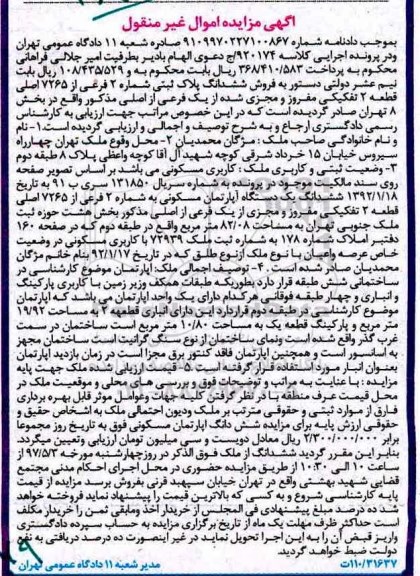 آگهی مزایده اموال غیر منقول
بموجب دادنامه شماره ۹۱۰۹۹۷۰۲۲۷۱۰۰۸۶۷ صادره شعبه ۱۱ دادگاه عمومی تهران
ودر پرونده اجرایی کلاسه ۹۲۰۱۷۴/ج دعوی الهام بادپر بطرفیت امیر جلالی فراهانی
محکوم به پرداخت ۳۶۸/۴۱۰/۵۸۳ ریال بابت محکوم به و ۱۰۸/۴۳۵/۵۲۹ ریال بابت
نیم عشر دولتی دستور به فروش ششدانگ پلاک ثبتی شماره ۲ فرعی از ۷۲۶۵ اصلی
قطعه ۲ تفکیکی مفروز و مجزی شده از یک فرعی از اصلی مذکور واقع در بخش
۸ تهران صادر گردیده است که در این خصوص مراتب جهت ارزیابی به کارشناس
رسمی دادگستری ارجاع و به شرح توصیف و اجمالی و ارزیابی گردیده است.۱- نام
و نام خانوادگی صاحب ملک : مژگان محمدیان ۲- محل وقوع ملک تهران چهارراه
سیروس خیابان ۱۵ خرداد شرقی کوچه شهید آل آقا کوچه واعظی پلاک ۸ طبقه دوم
۳- وضعیت ثبتی و کاربری ملک : کاربری مسکونی می باشد بر اساس تصویر صفحه
روی سند مالکیت موجود در پرونده به شماره سریال ۱۳۱۸۵۰ سری ب ۹۱ به تاریخ
۱۳۹۲/۱/۱۸ ششدانگ یک دستگاه آپارتمان مسکونی به شماره ۲ فرعی از ۷۲۶۵ اصلی
قطعه ۲ تفکیکی مفروز و مجزی از یک فرعی از اصلی مذکور بخش هشت حوزه ثبت
ملک جنوبی تهران به مساحت ۸۲/۰۸ متر مربع واقع در طبقه دوم که در صفحه ۱۶۰
دفتر املاک شماره ۱۷۸ به شماره ثبت ملک ۷۲۹۳۹ با کاربری مسکونی در وضعیت
خاص عرصه واعیان با نوع ملک ازنوع طلق که در تاریخ ۹۲/۱/۱۷ بنام خانم مژگان
محمدیان صادر شده است . ۴- توصیف اجمالی ملک: آپارتمان موضوع کارشناسی در
ساختمانی شش طبقه قرار دارد بطوریکه طبقات همکف وزیر زمین با کاربری پارکینگ
و انباری و چهار طبقه فوقانی هرکدام دارای یک واحد آپارتمان می باشد که آپارتمان
موضوع کارشناسی در طبقه دوم قراردارد این دارای انباری قطعه ۲ به مساحت ۱۹/۹۲
متر مربع و پارکینگ قطعه یک به مساحت ۱۰/۸۰ متر مربع است ساختمان در سمت
غرب گذر واقع شده است ونمای ساختمان از نوع سنگ گرانیت است ساختمان مجهز
به آسانسور است و همچنین آپارتمان فاقد کنتور برق مجزا است در زمان بازدید آپارتمان
بعنوان انبار مورد استفاده قرار گرفته است ۵- قیمت ارزیابی شده ملک جهت پایه
مزایده : با عنایت به مراتب و توضیحات فوق و بررسی های محلی و موقعیت ملک در
محل قیمت عرف منطقه با در نظر گرفتن کلیه جهات وعوامل موثر قابل بهره برداری
فارق از موارد ثبتی و حقوقی مترتب بر ملک ودیون احتمالی ملک به اشخاص حقیق و
حقوقی ارزش پایه برای مزایده شش دانگ آپارتمان مسکونی فوق به تاریخ روز مجموعا
برابر ۲/۳۰۰/۰۰۰/۰۰۰ ریال معادل دویست و سی میلیون تومان ارزیابی وتعیین میگردد.
بنابر این مقرر گردید ششدانگ از ملک فوق الذکر در روزچهارشنبه مورخه ۹۷/۵/۳ از
ساعت ۱۰ الی ۱۰:۳۰ از طریق مزایده حضوری در محل اجرای احکام مدنی مجتمع
قضایی شهید بهشتی واقع در تهران خیابان سپهبد قرنی بفروش برسد مزایده از قیمت
پایه کارشناسی شروع و به کسی که بالاترین قیمت را پیشنهاد نماید فروخته خواهد
شد ده درصد مبلغ پیشنهادی فی المجلس از خریدار اخذ ومابقی ثمن را خریدار مکلف
است حداکثر ظرف مهلت یک ماه از تاریخ برگزاری مزایده به حساب سپرده دادگستری
واریز قبض آن را به این اجرا تحویل نماید در غیر اینصورت ده درصد دریافتی به نفع
دولت ضبط خواهد گردید.
۱۱۰/۳۱۶۳۷/ت
مدیر شعبه ۱۱ دادگاه عمومی تهران